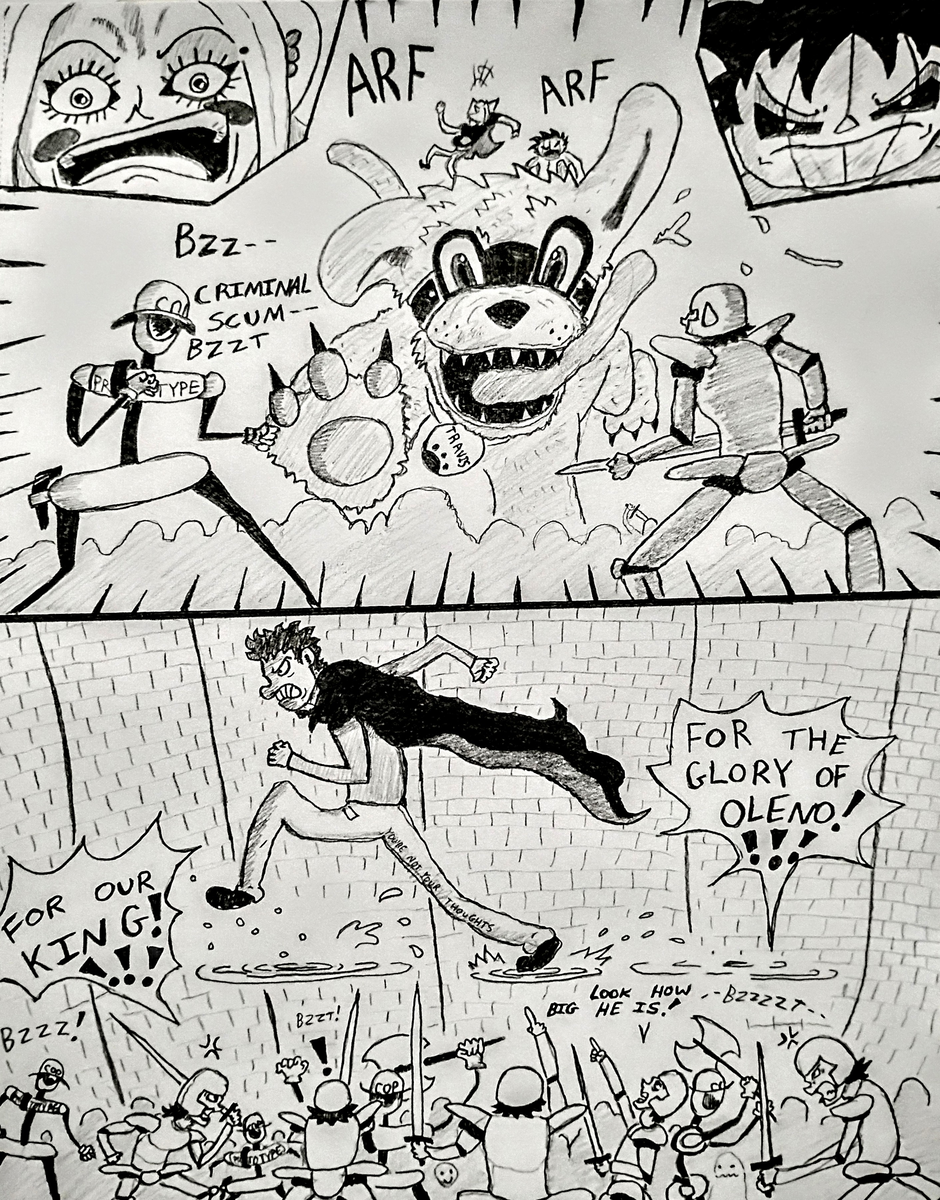 ARF
ARF
BZZ--
CRIMINAL
SCUM--
BZZT
CO
PR TYPE
TRAVIS
FOR THE
GLORY OF
OLENO!
!!!
YOU'RE NOT YOUR THOUGHTS
FOR OUR
KING!
!!!
LOOK HOW
BIG HE IS!
--BZZZZT--
BZZZ!
BZZT!
!
COP
COP
CO